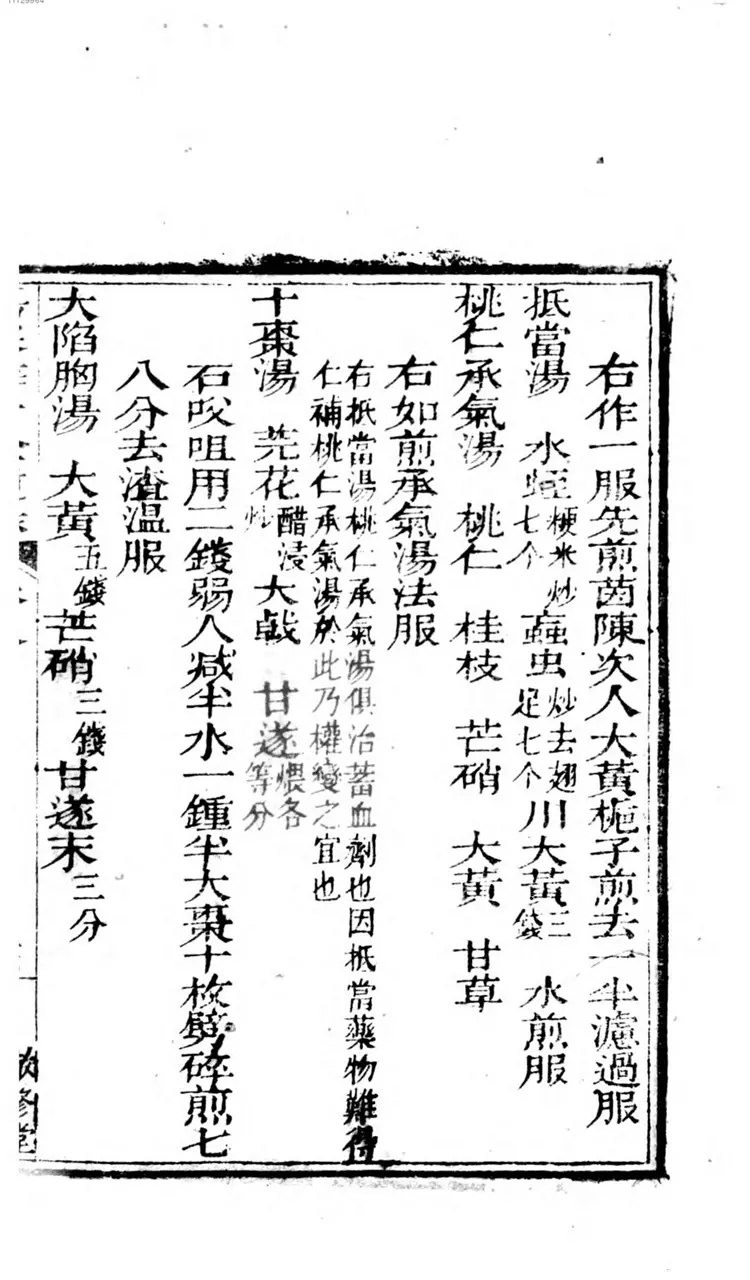 右作一服先煎茵陳次入大黃梔子煎去一半濾過服
抵當湯 水蛭粳米炒七个 蝱虫炒去翅足七个 川大黃三錢 水煎服
桃仁承氣湯 桃仁 桂枝 芒硝 大黃 甘草
右如煎承氣湯法服
右抵當湯桃仁承氣湯俱治蓄血劑也因抵當藥物難得
仁補桃仁承氣湯於此乃權變之宜也
十棗湯 芫花醋浸炒 大戟 甘遂煨各等分
右㕮咀用二錢弱人减半水一鍾半大棗十枚劈碎煎七
八分去渣溫服
大陷胸湯 大黃五錢 芒硝三錢 甘遂末三分
欽修堂
11129964